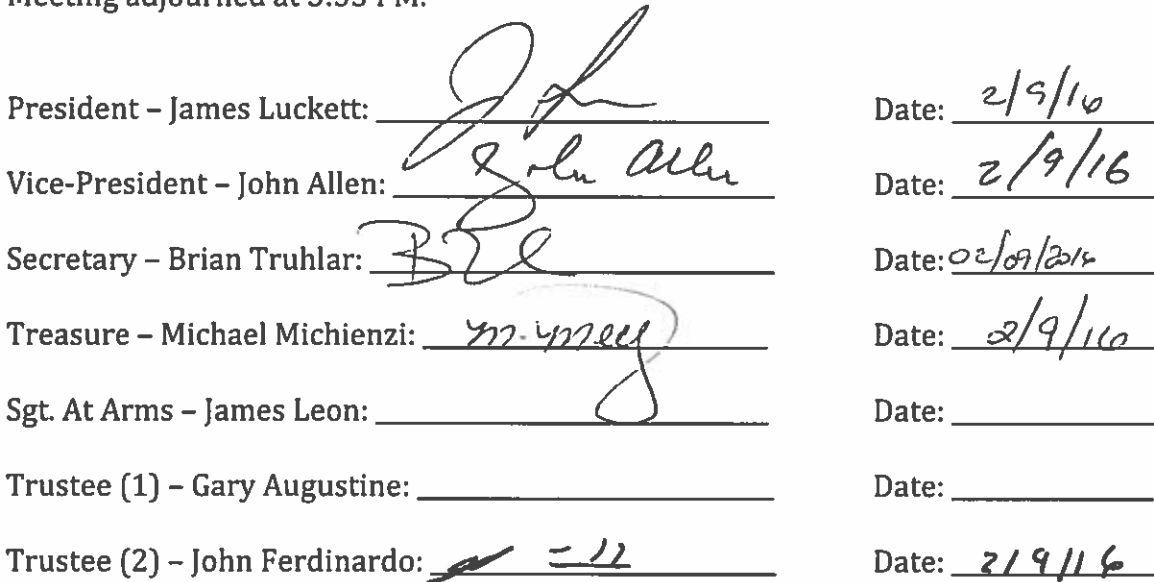 President – James Luckett: Date: 2/9/16
Vice-President – John Allen: John Allen Date: 2/9/16
Secretary – Brian Truhlar: Date: 02/09/2016
Treasure – Michael Michienzi: Date: 2/9/16
Sgt. At Arms – James Leon: Date:
Trustee (1) – Gary Augustine: Date:
Trustee (2) – John Ferdinardo: Date: 2/9/16